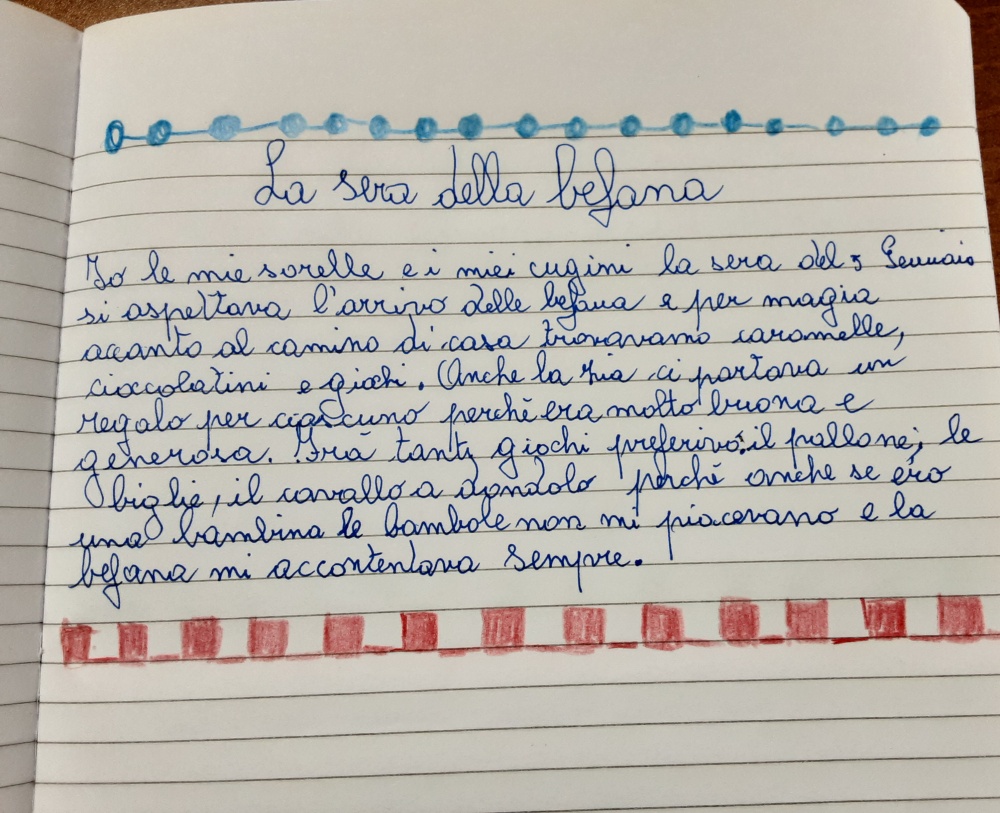 La sera della befana
Io le mie sorelle e i miei cugini la sera del 5 Gennaio
si aspettava l'arrivo delle befana e per magia
accanto al camino di casa trovavamo caramelle,
cioccolatini e giochi. Anche la zia ci portava un
regalo per ciascuno perchè era molto buona e
generosa. Frà tanti giochi preferivo: il pallone, le
biglie, il cavallo a dondolo perchè anche se ero
una bambina le bambole non mi piacevano e la
befana mi accontentava sempre.